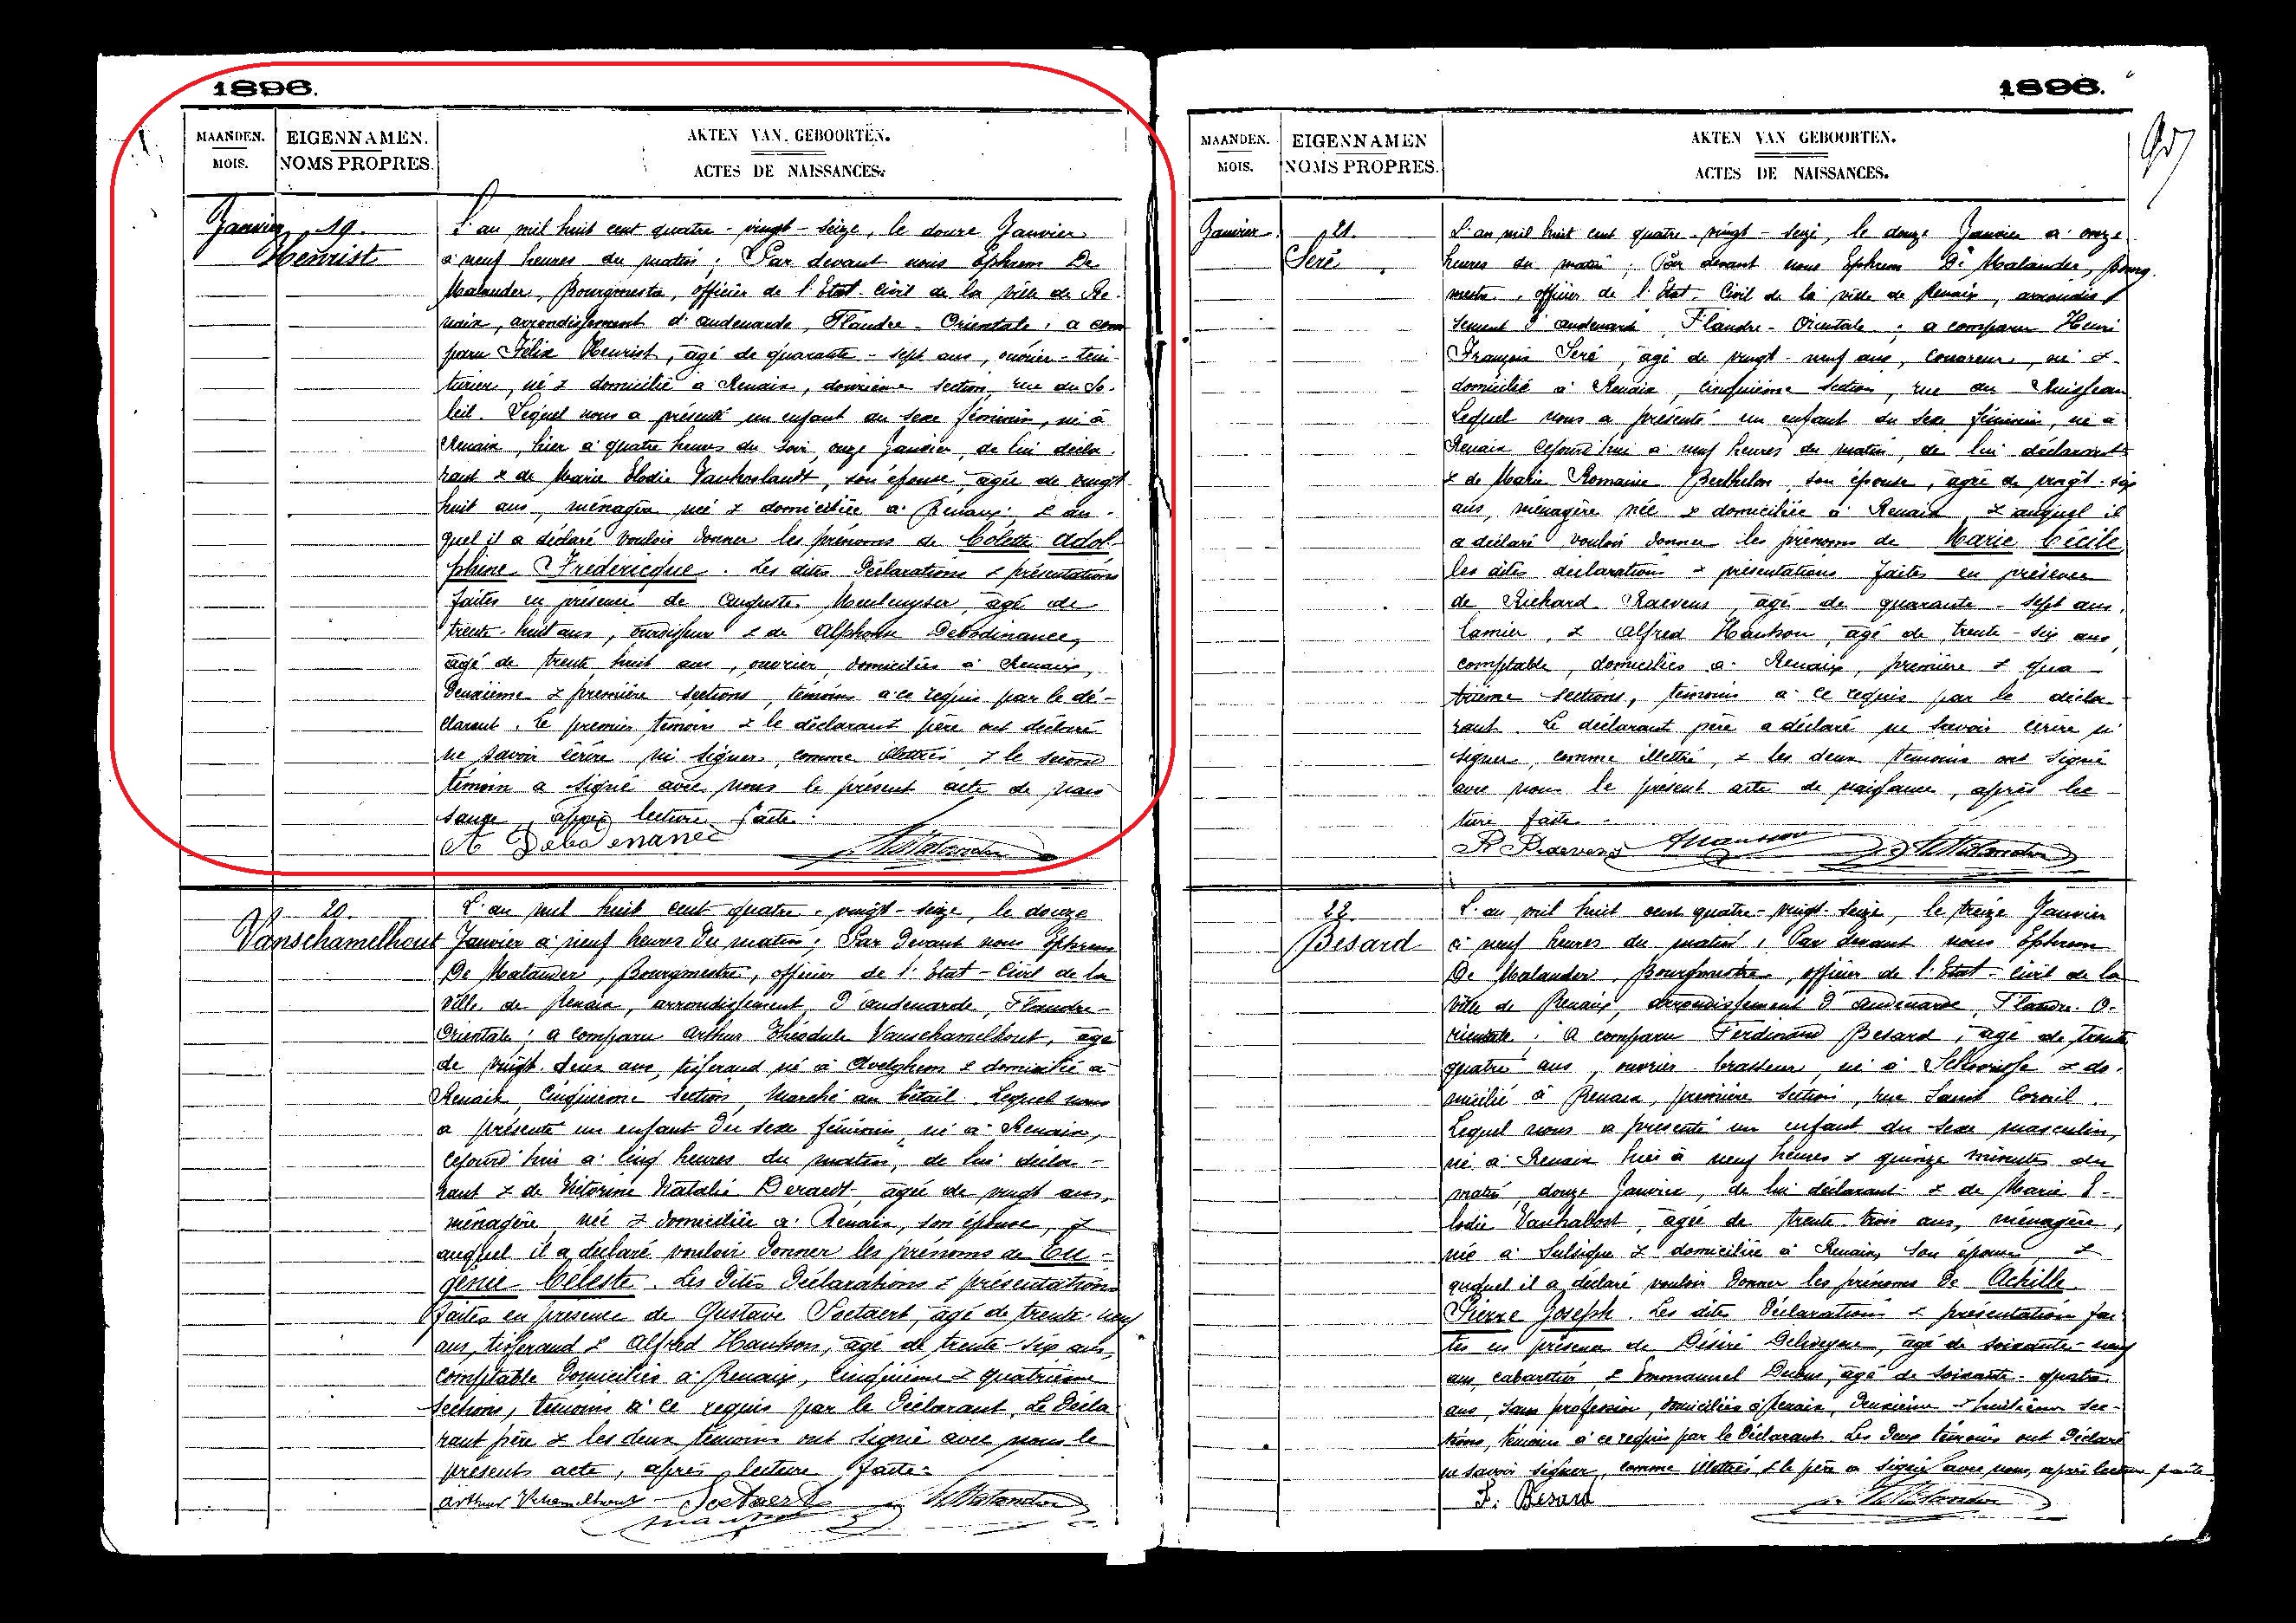 1896.
MAANDEN.
MOIS.
EIGENNAMEN.
NOMS PROPRES.
AKTEN VAN GEBOORTEN.
ACTES DE NAISSANCES.
Janvier 19.
Henrist
L'an mil huit cent quatre-vingt-seize, le douze Janvier
à neuf heures du matin; Par devant nous Ephrem De
Malander, Bourgmestre, officier de l'Etat-Civil de la ville de Re-
naix, arrondissement d'audenarde, Flandre-Orientale; a com
paru Félix Henrist, âgé de quarante-sept ans, ouvrier-tein-
turier, né & domicilié à Renaix, douxième section, rue du So-
leil. Lequel nous a présenté un enfant du sexe féminin, né à
Renaix, hier à quatre heures du soir, onze Janvier, de lui décla-
rant & de Marie Elodie Vanhoslandt, son épouse, âgée de vingt
huit ans, ménagère née & domiciliée à Renaix; & au-
quel il a déclaré vouloir donner les prénoms de Colette Adol-
phine Frédéricque. Les dites Déclarations & présentations
faites en présence de Auguste Meulemyster, âgé de
trente-huit ans, ourdisseur & de Alphonse Debodinance,
âgé de trente huit ans, ouvrier, domiciliés à Renaix,
deuxième & première sections, témoins à ce requis par le dé-
clarant. Le premier témoin & le déclarant père ont déclaré
ne savoir écrire ni signer, comme illettrés, & le second
témoin a signé avec nous le présent acte de nais
sance, après lecture faite.
A Debodenance
20.
Vanschamelhout
L'an mil huit cent quatre-vingt-seize, le douze
Janvier à neuf heures du matin; Par devant nous Ephrem
De Malander, Bourgmestre, officier de l'Etat-Civil de la
ville de Renaix, arrondissement d'audenarde, Flandre-
Orientale; a comparu Arthur Théodule Vanschamelhout, âgé
de vingt-deux ans, tisserand né à Avelghem & domicilié à
Renaix, Cinquième section, Marché au bétail. Lequel nous
a présenté un enfant du sexe féminin, né à Renaix,
cejourd'hui à cinq heures du matin, de lui décla-
rant & de Victorine Natalie Deraedt, âgée de vingt ans,
ménagère née & domiciliée à Renaix, son épouse, &
auquel il a déclaré vouloir donner les prénoms de Eu-
génie Céleste. Les dites Déclarations & présentations
faites en présence de Gustave Soetaert, âgé de trente-neuf
ans, tisserand & Alfred Hautson, âgé de trente-six ans,
comptable domiciliés à Renaix, Cinquième & quatrième
sections, témoins à ce requis par le Déclarant. Le Décla
rant père & les deux témoins ont signé avec nous le
présent acte, après lecture faite.
Soetaert
1896.
MAANDEN.
MOIS.
EIGENNAMEN
NOMS PROPRES.
AKTEN VAN GEBOORTEN.
ACTES DE NAISSANCES.
Janvier 21.
Seré
L'an mil huit cent quatre-vingt-seize, le douze Janvier à onze
heures du matin; Par devant nous Ephrem De Malander, Bourg-
mestre, officier de l'Etat-Civil de la ville de Renaix, arrondis-
sement d'audenarde, Flandre-Orientale; a comparu Henri
François Seré, âgé de vingt-neuf ans, couvreur, né &
domicilié à Renaix, cinquième section, rue du Ruisseau
Lequel nous a présenté un enfant du sexe féminin, né à
Renaix cejourd'hui à neuf heures du matin, de lui déclarant
& de Marie Romanie Berthelon son épouse, âgée de vingt-six
ans, ménagère née & domiciliée à Renaix, & auquel il
a déclaré vouloir donner les prénoms de Marie Cécile
les dites déclarations & présentations faites en présence
de Richard Raevens, âgé de quarante-sept ans,
lamier, & Alfred Hautson, âgé de trente-six ans,
comptable, domiciliés à Renaix, première & qua
trième sections, témoins à ce requis par le décla-
rant. Le déclarant père a déclaré ne savoir écrire ni
signer, comme illettré, & les deux témoins ont signé
avec nous le présent acte de naissance, après lec-
ture faite.
R Raevens
22.
Besard
L'an mil huit cent quatre-vingt-seize, le treize Janvier
à neuf heures du matin; Par devant nous Ephrem
De Malander, Bourgmestre, officier de l'Etat-Civil de la
ville de Renaix, arrondissement d'audenarde, Flandre-O-
rientale; a comparu Ferdinand Besard, âgé de trente
quatre ans, ouvrier brasseur, né à Schoorisse & do-
micilié à Renaix, première section, rue Saint Corneil.
Lequel nous a présenté un enfant du sexe masculin,
né à Renaix hier à neuf heures & quinze minutes du
matin, douze Janvier, de lui déclarant & de Marie E-
lodie Vanhabost, âgée de trente-trois ans, ménagère,
née à Sulsique & domiciliée à Renaix, son épouse &
auquel il a déclaré vouloir donner les prénoms de Achille
Pierre Joseph. Les dites Déclarations & présentation fai
tes en présence de Désiré Delvoye, âgé de soixante-neuf
ans, cabaretier, & Emmanuel Dubus, âgé de soixante-quatre
ans, sans profession, domiciliés à Renaix, deuxième & huitième sec-
tions, témoins à ce requis par le Déclarant. Les deux témoins ont Déclaré
ne savoir signer, comme illettrés, & le père a signé avec nous, après lecture faite
F. Besard